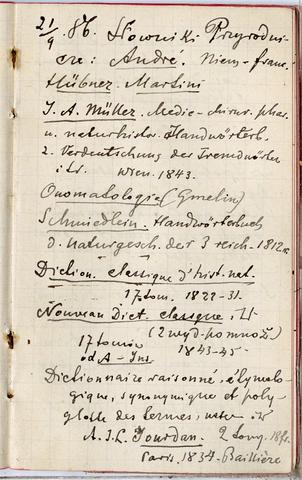 21/9. 86. Słowniki Przyrodni-
cze: André. Niem-franc.
Hübner. Martini
J. A. Müller. Medic-chirur. phar.
u. naturhistor. Handwörterb.
z. Verdeutschung der Fremdwörter
Wien. 1843.
Onomatologia (Gmelin)
Schmiedlein. Handwörterbuch
d. Naturgesch. der 3 reich. 1812
Diction. classique d'hist. nat.
17 tom. 1822-31.
Nouveau Dict. classique,
(2 wyd. pomnoż.)
17 tomów 1843-45
od A - Ins
Dictionnaire raisonné, étymolo-
gique, synonymique et poly-
glotte des termes,
A. J. L. Jourdan. 2 tomy.
Paris. 1834. Baillière